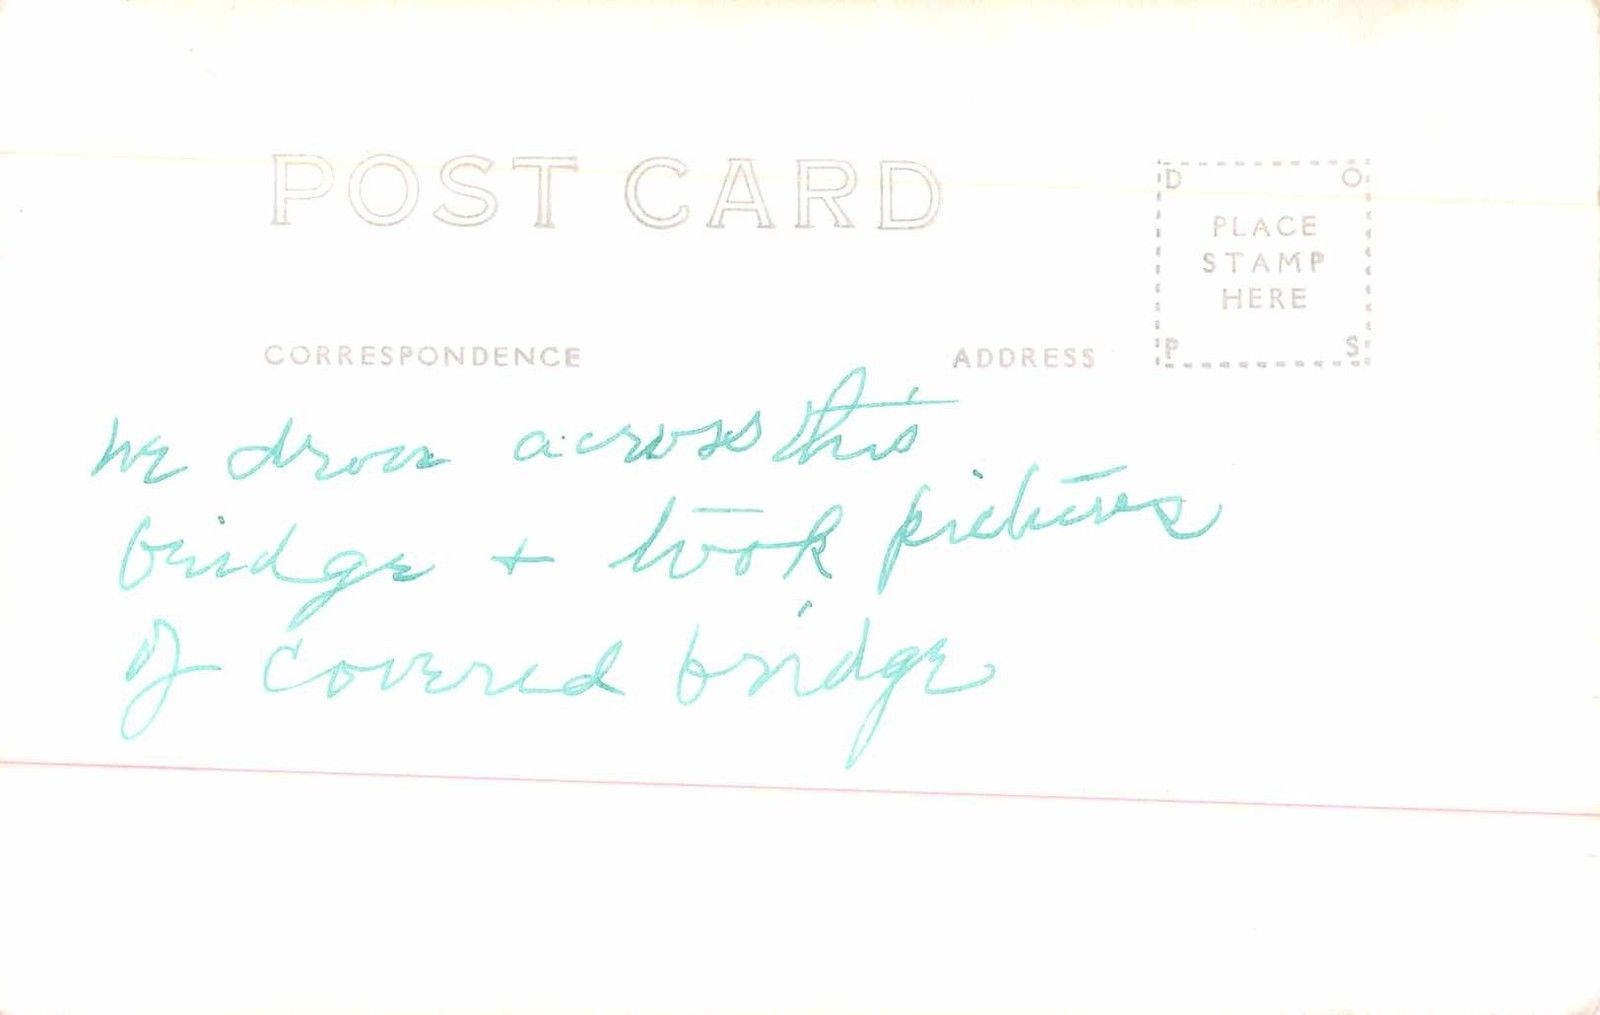 POST CARD
D O
PLACE
STAMP
HERE
P S
CORRESPONDENCE
ADDRESS
We drove across this
bridge + took pictures
of covered bridge